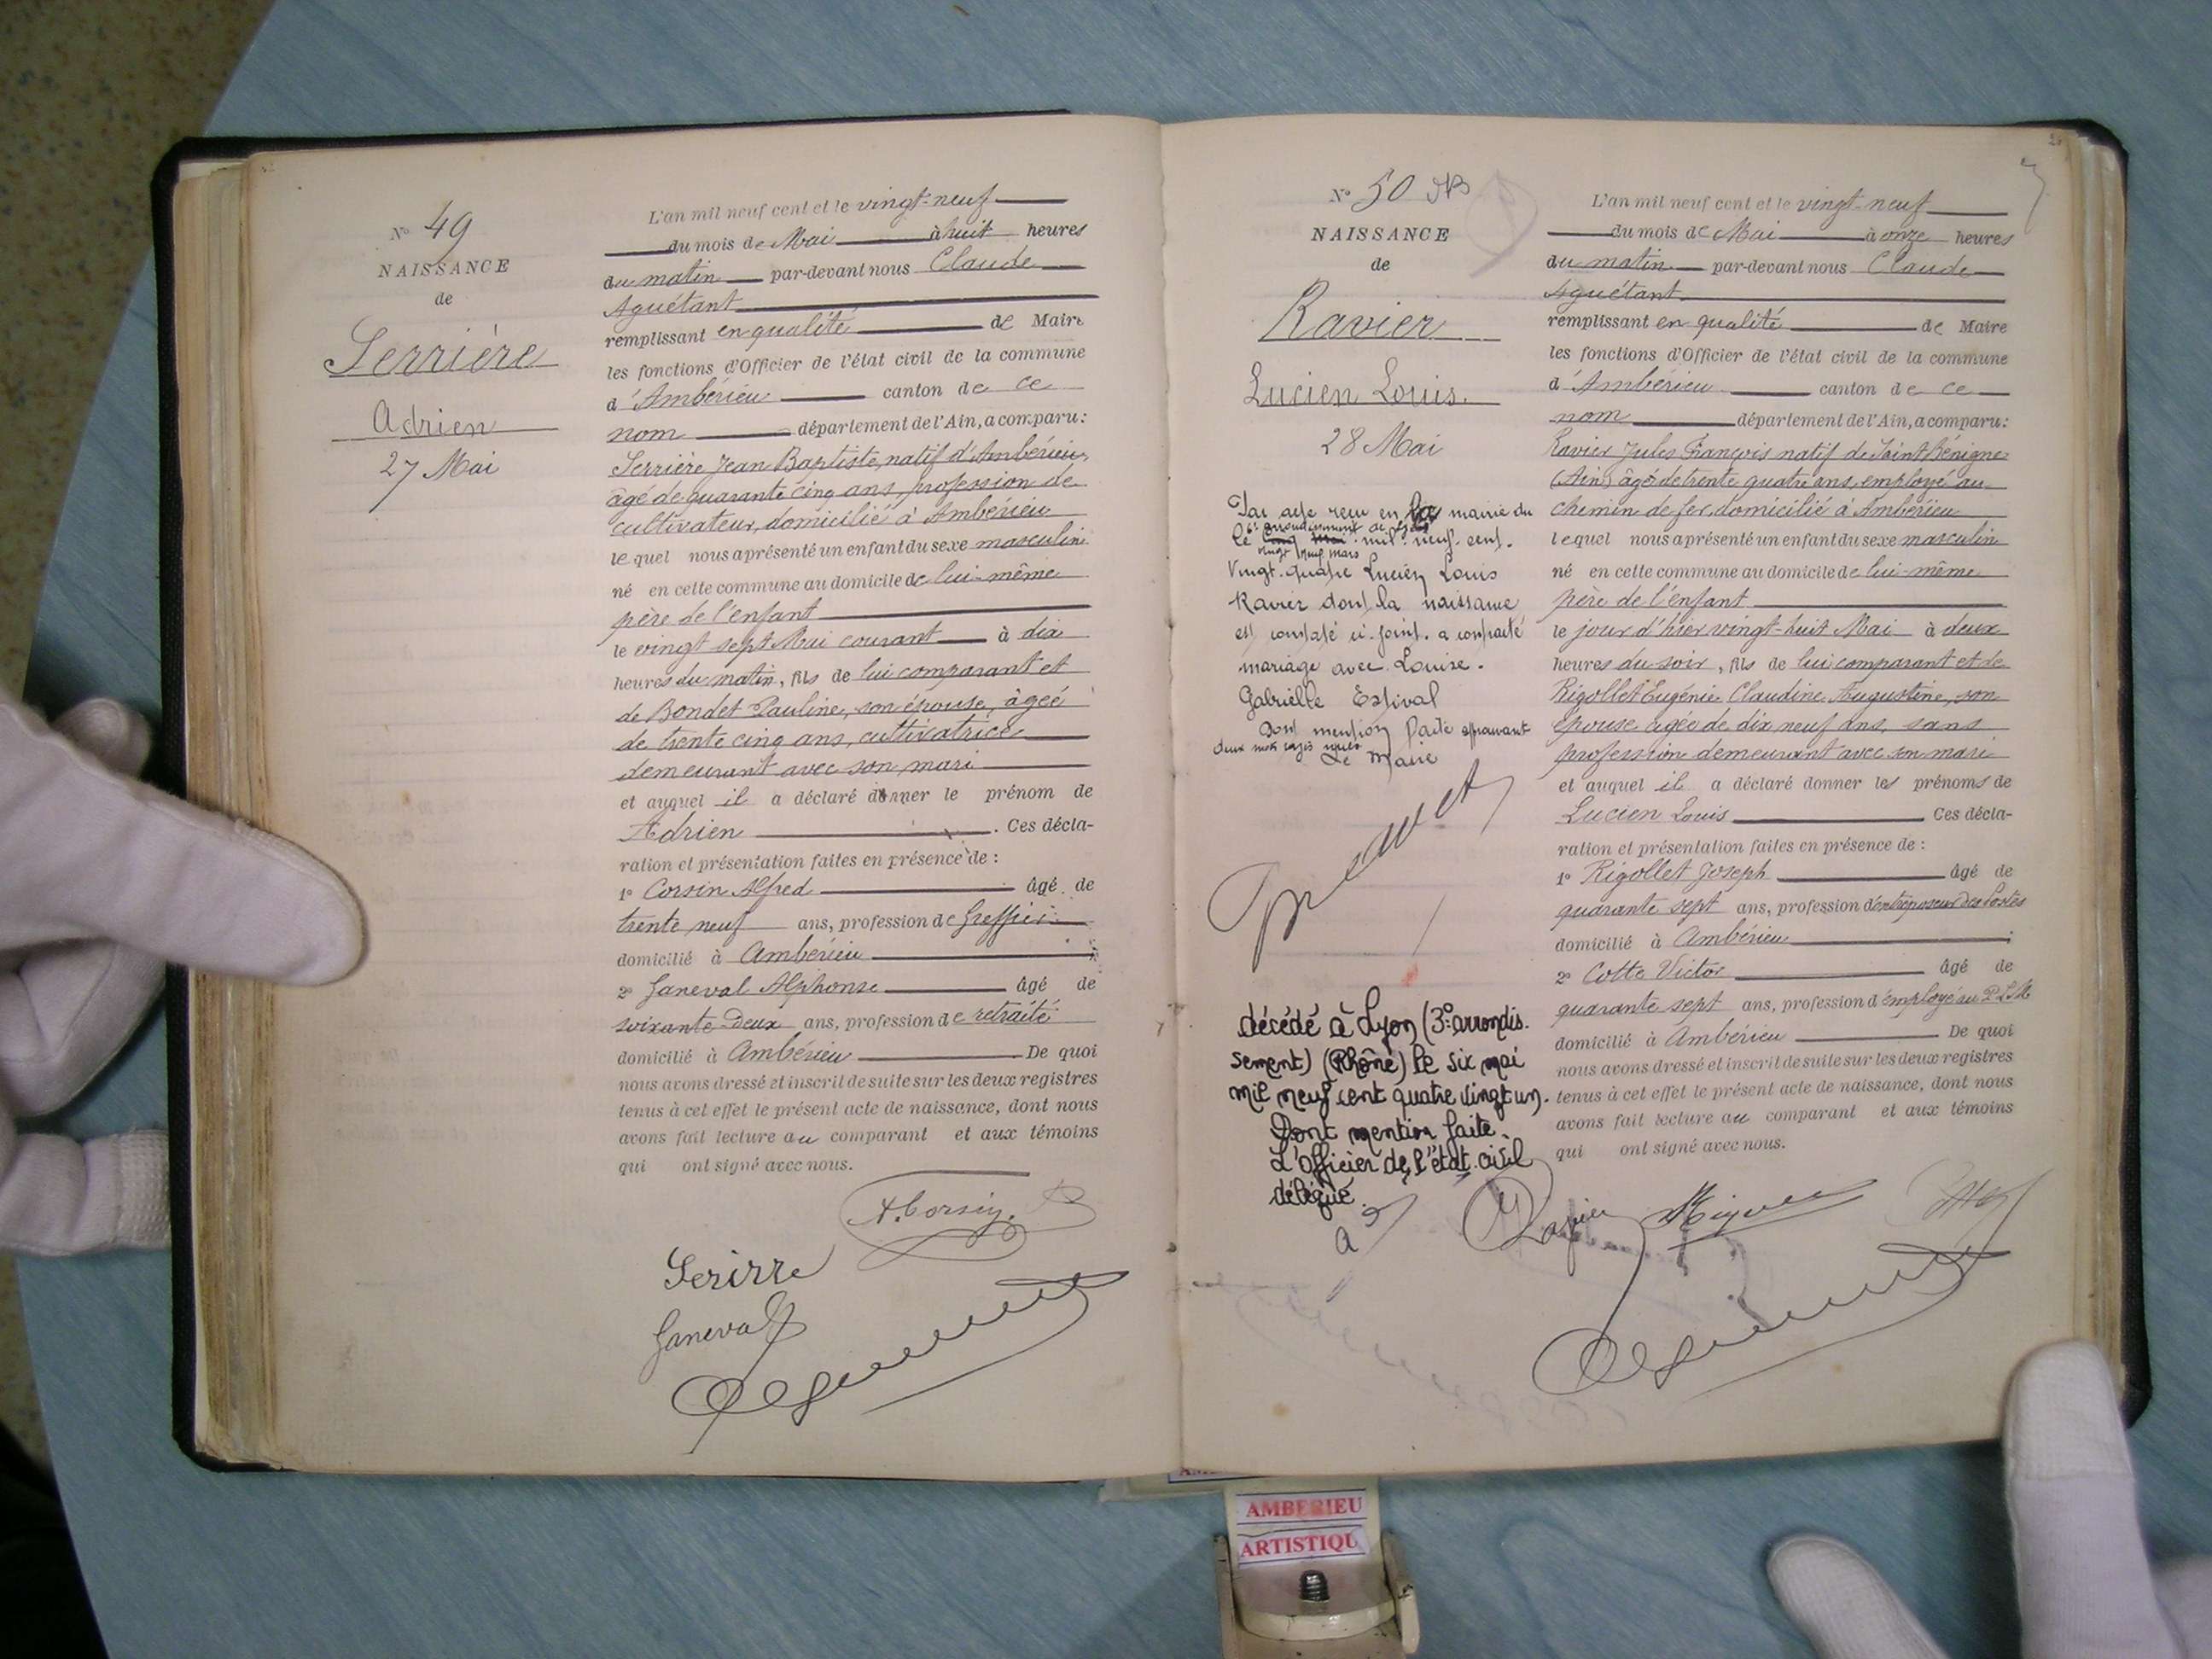 N° 49
NAISSANCE
de
Serrière
Adrien
27 Mai
L'an mil neuf cent et le vingt-neuf
du mois de Mai à huit heures
du matin par-devant nous Claude
Aguétant
remplissant en qualité de Maire
les fonctions d'Officier de l'état civil de la commune
d'Ambérieu canton de ce
nom département de l'Ain, a comparu:
Serrière Jean Baptiste, natif d'Ambérieu,
âgé de quarante cinq ans, profession de
cultivateur, domicilié à Ambérieu
lequel nous a présenté un enfant du sexe masculin
né en cette commune au domicile de lui-même
père de l'enfant
le vingt sept Mai courant à dix
heures du matin, fils de lui comparant et
de Bondet Pauline, son épouse, âgée
de trente cinq ans, cultivatrice
demeurant avec son mari
et auquel il a déclaré donner le prénom de
Adrien. Ces décla-
ration et présentation faites en présence de :
1° Corsin Alfred âgé de
trente neuf ans, profession de Greffier
domicilié à Ambérieu
2° Janeval Alphonse âgé de
soixante-deux ans, profession de retraité
domicilié à Ambérieu De quoi
nous avons dressé et inscrit de suite sur les deux registres
tenus à cet effet le présent acte de naissance, dont nous
avons fait lecture au comparant et aux témoins
qui ont signé avec nous.
A. Corsin.
Serirre
Janeval
N° 50
NAISSANCE
de
Ravier
Lucien Louis.
28 Mai
Par acte reçu en la mairie du
6e arrondissement de Lyon
le mil neuf cent
vingt neuf mars
Vingt-quatre Lucien Louis
Ravier dont la naissance
est constaté ci-joint a contracté
mariage avec Louise
Gabrielle Estival
Dont mention faite
deux mots rayés nuls
Le Maire
décédé à Lyon (3e arrondis-
sement) (Rhône) le six mai
mil neuf cent quatre vingt un.
Dont mention faite.
L'officier de l'état civil
délégué.
L'an mil neuf cent et le vingt-neuf
du mois de Mai à onze heures
du matin par-devant nous Claude
Aguétant
remplissant en qualité de Maire
les fonctions d'Officier de l'état civil de la commune
d'Ambérieu canton de ce
nom département de l'Ain, a comparu:
Ravier Jules François natif de Saint Bénigne
(Ain) âgé de trente quatre ans, employé au
chemin de fer, domicilié à Ambérieu
lequel nous a présenté un enfant du sexe masculin
né en cette commune au domicile de lui-même
père de l'enfant
le jour d'hier vingt-huit Mai à deux
heures du soir, fils de lui comparant et de
Rigollet Eugénie Claudine Augustine, son
épouse âgée de dix neuf ans, sans
profession demeurant avec son mari
et auquel il a déclaré donner les prénoms de
Lucien Louis Ces décla-
ration et présentation faites en présence de :
1° Rigollet Joseph âgé de
quarante sept ans, profession d'entreposeur des Postes
domicilié à Ambérieu
2° Cotte Victor âgé de
quarante sept ans, profession d'employé au P.L.M
domicilié à Ambérieu De quoi
nous avons dressé et inscrit de suite sur les deux registres
tenus à cet effet le présent acte de naissance, dont nous
avons fait lecture au comparant et aux témoins
qui ont signé avec nous.
Ravier
AMBERIEU
ARTISTIQU